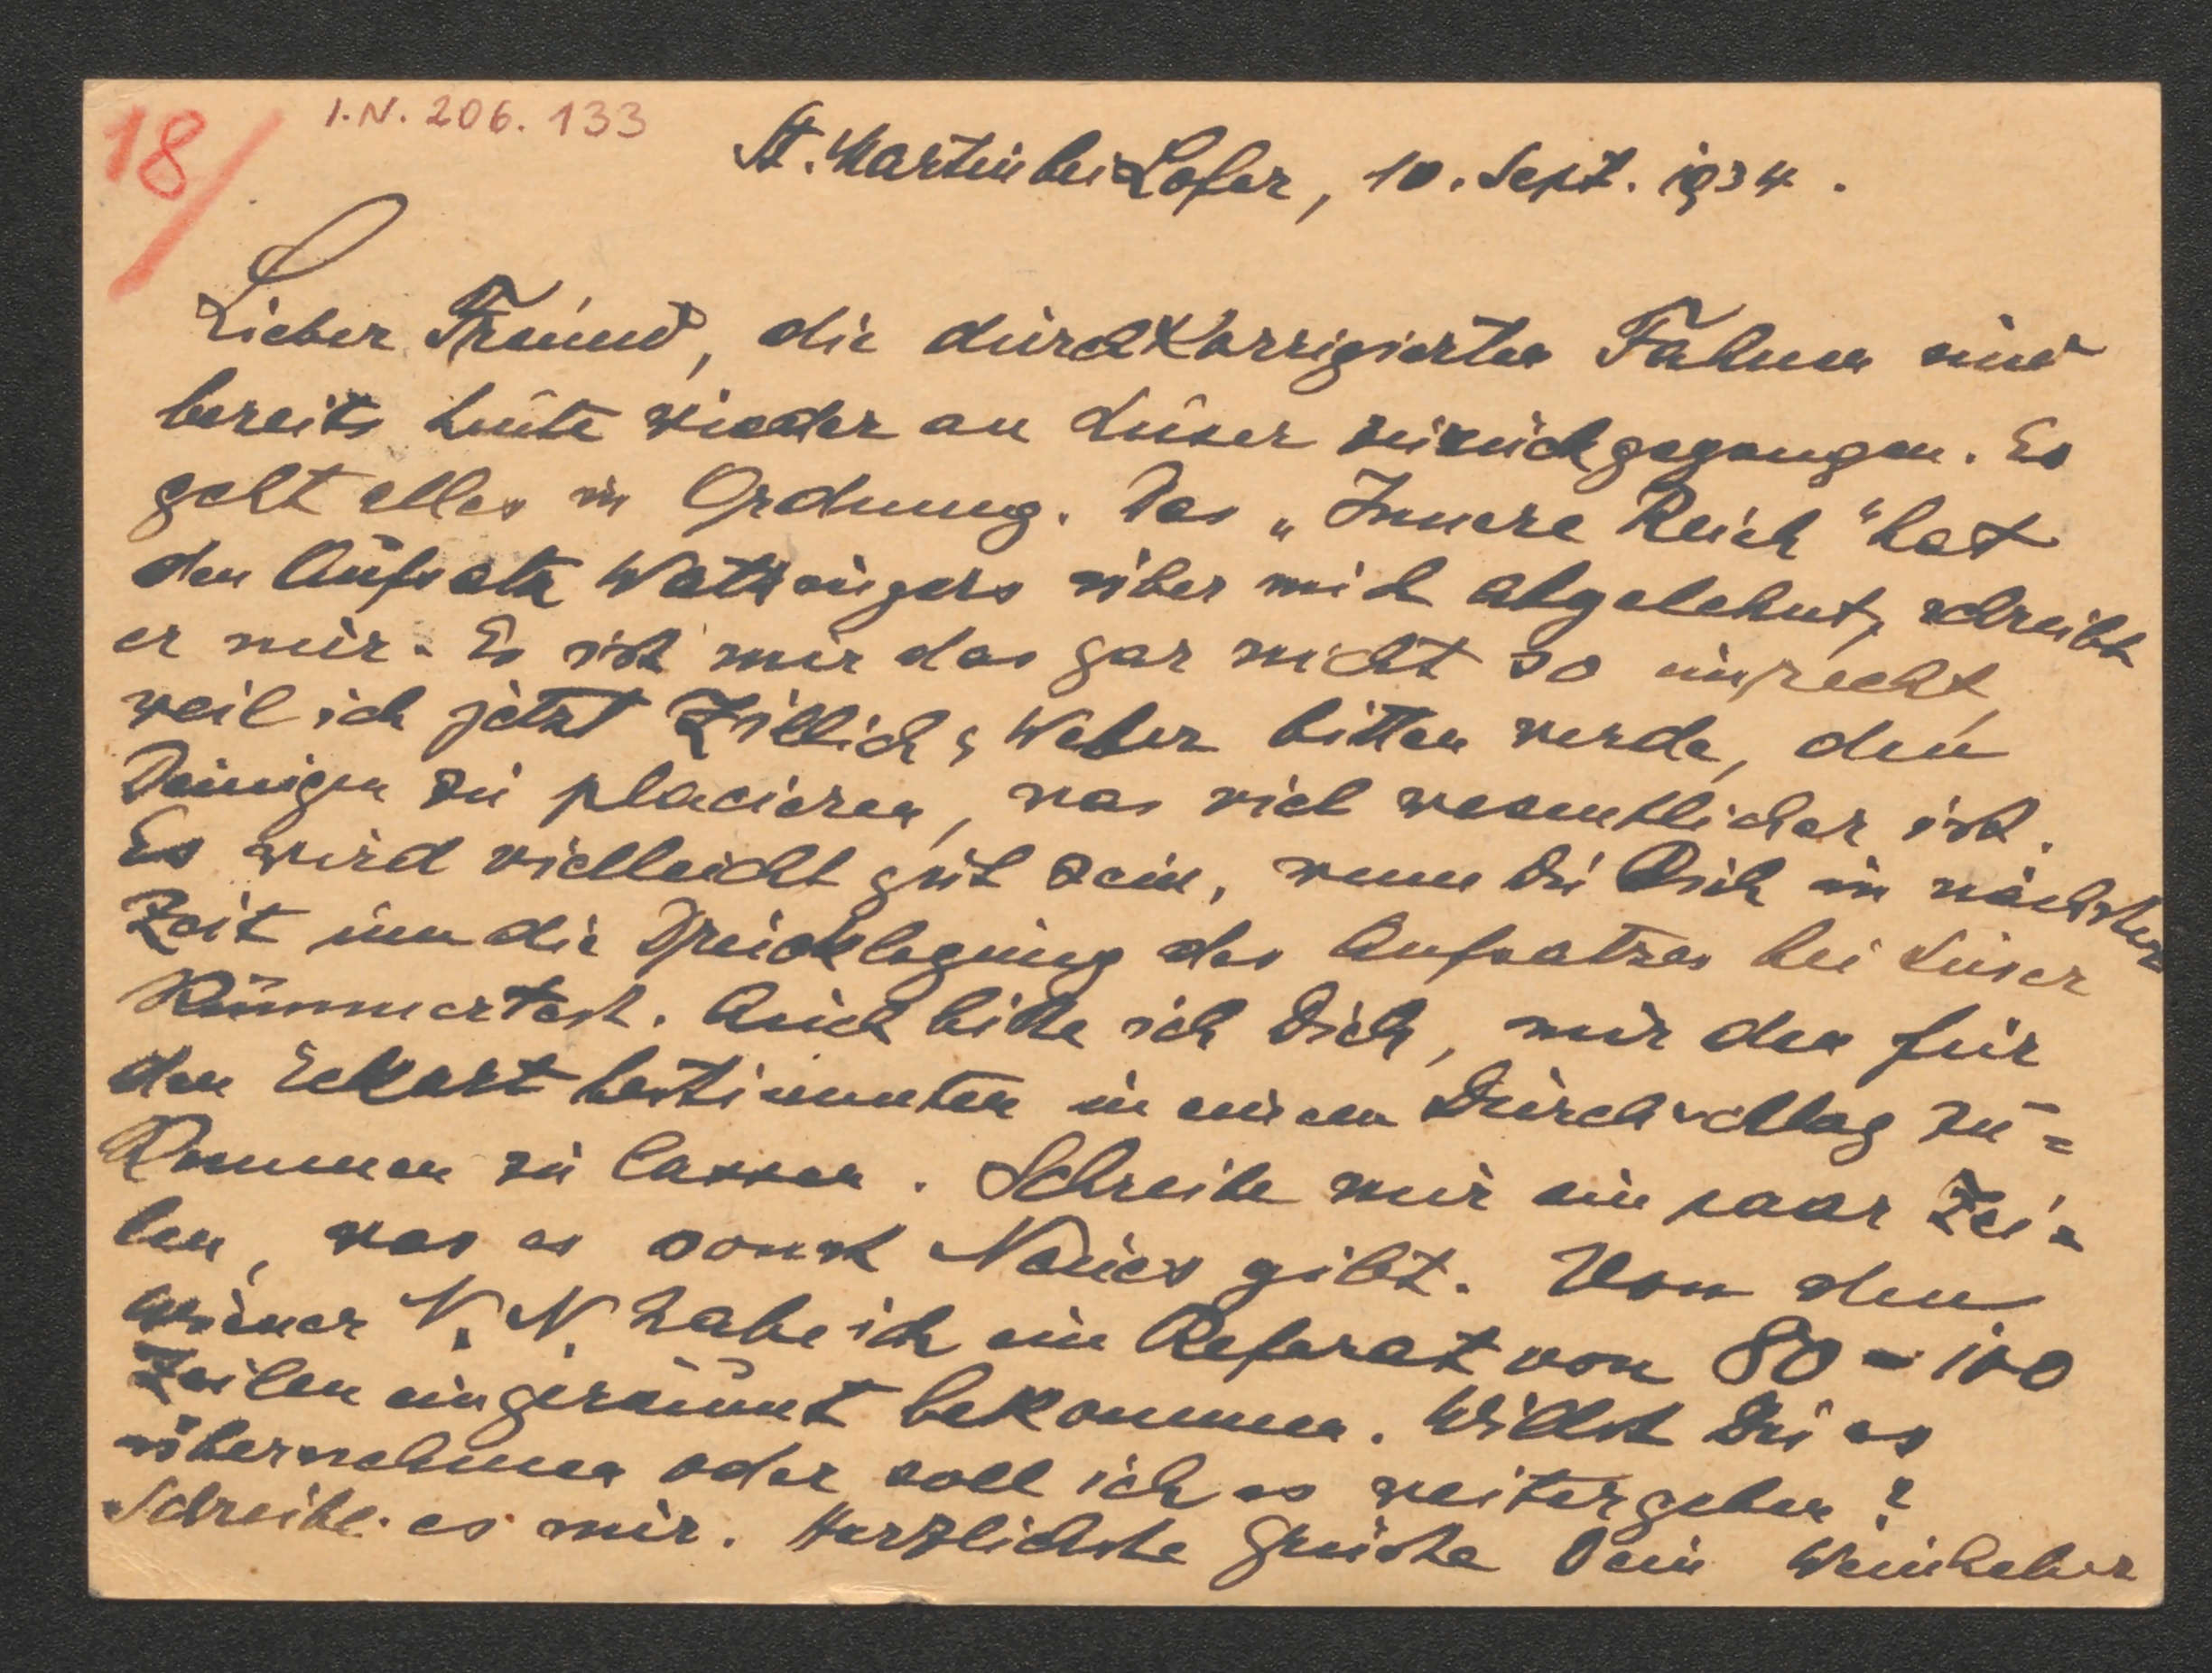 18/
I.N. 206.133
St. Martin bei Lofer, 10. Sept. 1934.
Lieber Freund, die durchkorrigierten Fahnen sind
bereits heute wieder an Luser zurückgegangen. Es
geht alles in Ordnung. Das „Innere Reich“ hat
den Aufsatz Watzingers über mich abgelehnt, schreibt
er mir. Es ist mir das gar nicht so unrecht,
weil ich jetzt Zillich & Weber bitten werde, den
Deinigen zu placieren, was viel wesentlicher ist.
Es wird vielleicht gut sein, wenn Du Dich in nächster
Zeit um die Drucklegung des Aufsatzes bei Luser
kümmertest. Auch bitte ich Dich, mir den für
den Eckart bestimmten in einem Durchschlag zu=
kommen zu lassen. Schreibe mir ein paar Zei=
len, was es sonst Neues gibt. Von den
Wiener N. N. habe ich ein Referat von 80-100
Zeilen eingeräumt bekommen. Willst Du es
übernehmen oder soll ich es weitergeben?
Schreibe es mir. Herzlichste Grüsse Dein Weinheber